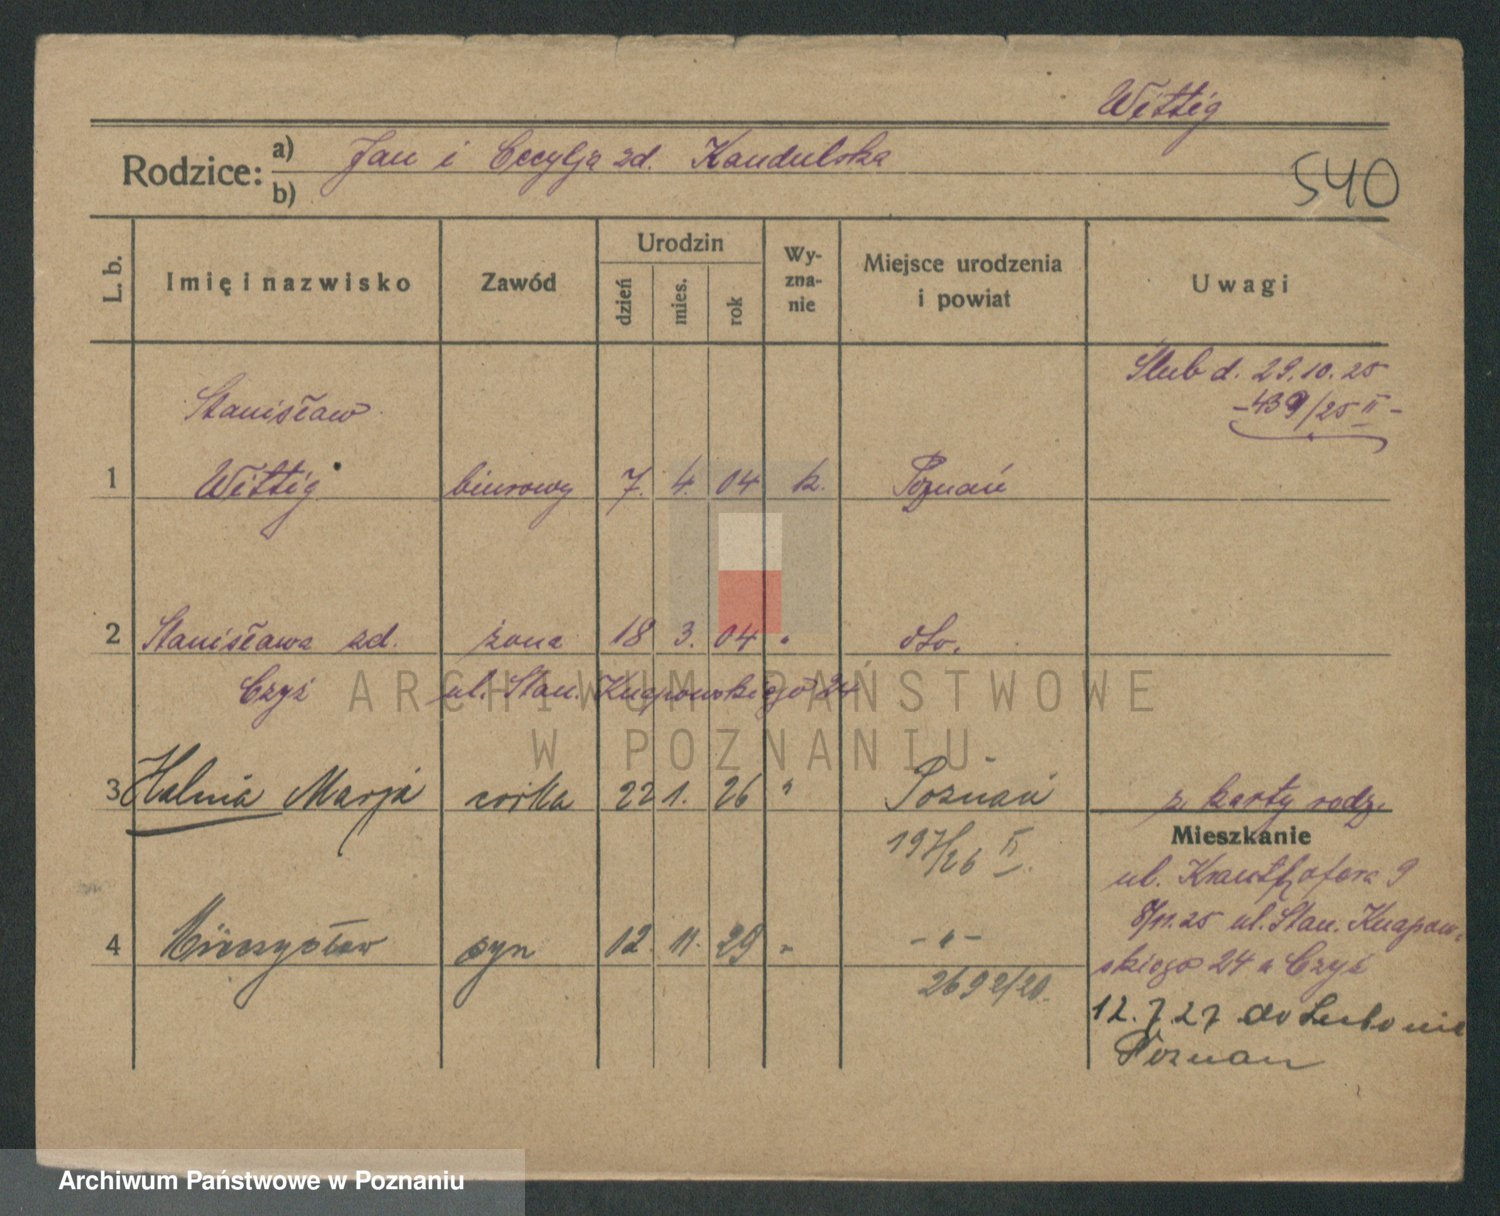 Wittig
Rodzice: a) Jan i Cecylja zd. Kandulska
b)
540
L. b. Imię i nazwisko Zawód Urodzin dzień mies. rok Wy-zna-nie Miejsce urodzenia i powiat Uwagi
Ślub d. 29.10.25
-439/25 II-
Stanisław
1 Wittig biurowy 7. 4. 04 k. Poznań
2 Stanisława zd. żona 18 3. 04 " dto.
Czyż ul. Stan. Knapowskiego 24
ARCHIWUM PAŃSTWOWE
W POZNANIU
3 Halina Marja córka 22 1. 26 " Poznań z karty rodz.
197/26 II.
Mieszkanie
ul. Krauthofera 9
8/11.25 ul. Stan. Knapow-
4 Mieczysław syn 12. 11. 29 " - " -
skiego 24 u Czyż
2692/20.
12. 7 27 do Lubonie
Poznań
Archiwum Państwowe w Poznaniu